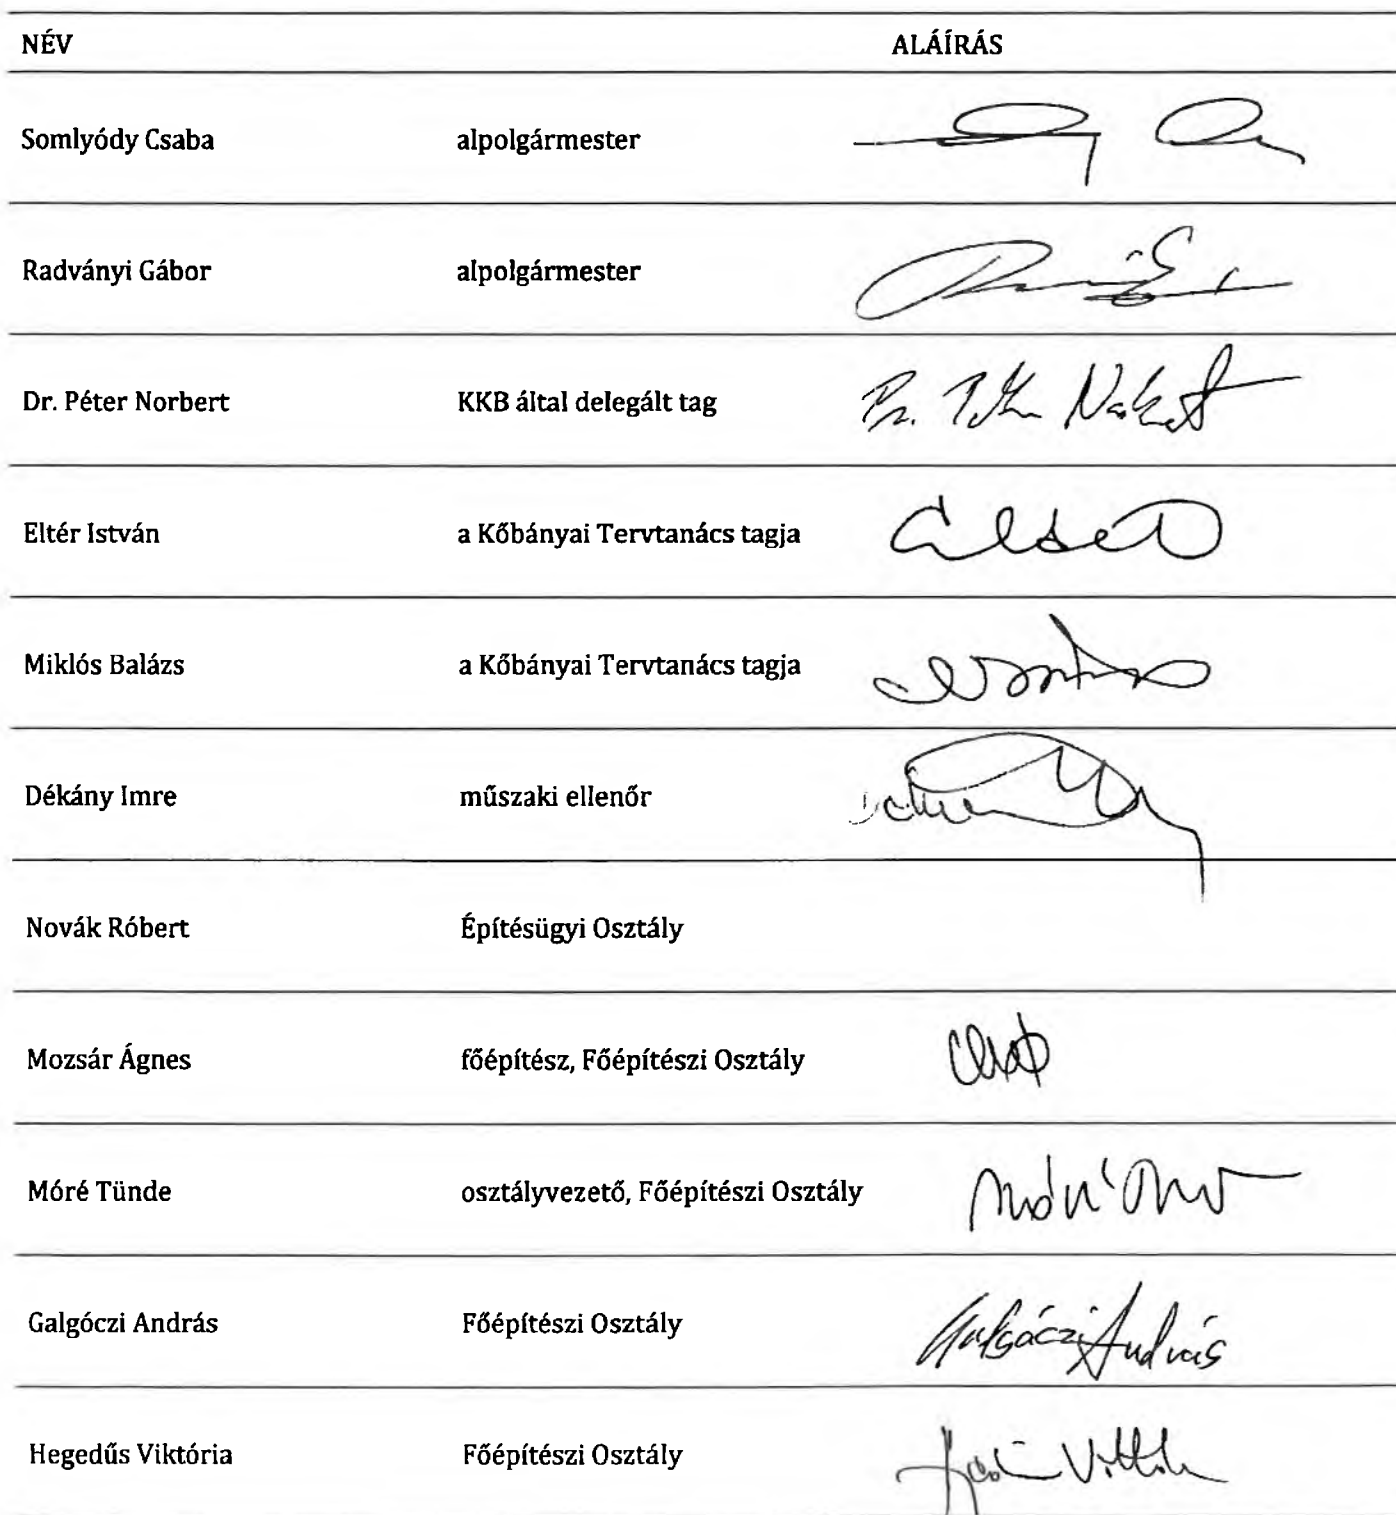 NÉV ALÁÍRÁS
Somlyódy Csaba alpolgármester
Radványi Gábor alpolgármester
Dr. Péter Norbert KKB által delegált tag Dr. Péter Norbert
Eltér István a Kőbányai Tervtanács tagja
Miklós Balázs a Kőbányai Tervtanács tagja
Dékány Imre műszaki ellenőr
Novák Róbert Építésügyi Osztály
Mozsár Ágnes főépítész, Főépítészi Osztály
Móré Tünde osztályvezető, Főépítészi Osztály
Galgóczi András Főépítészi Osztály Galgóczi András
Hegedűs Viktória Főépítészi Osztály